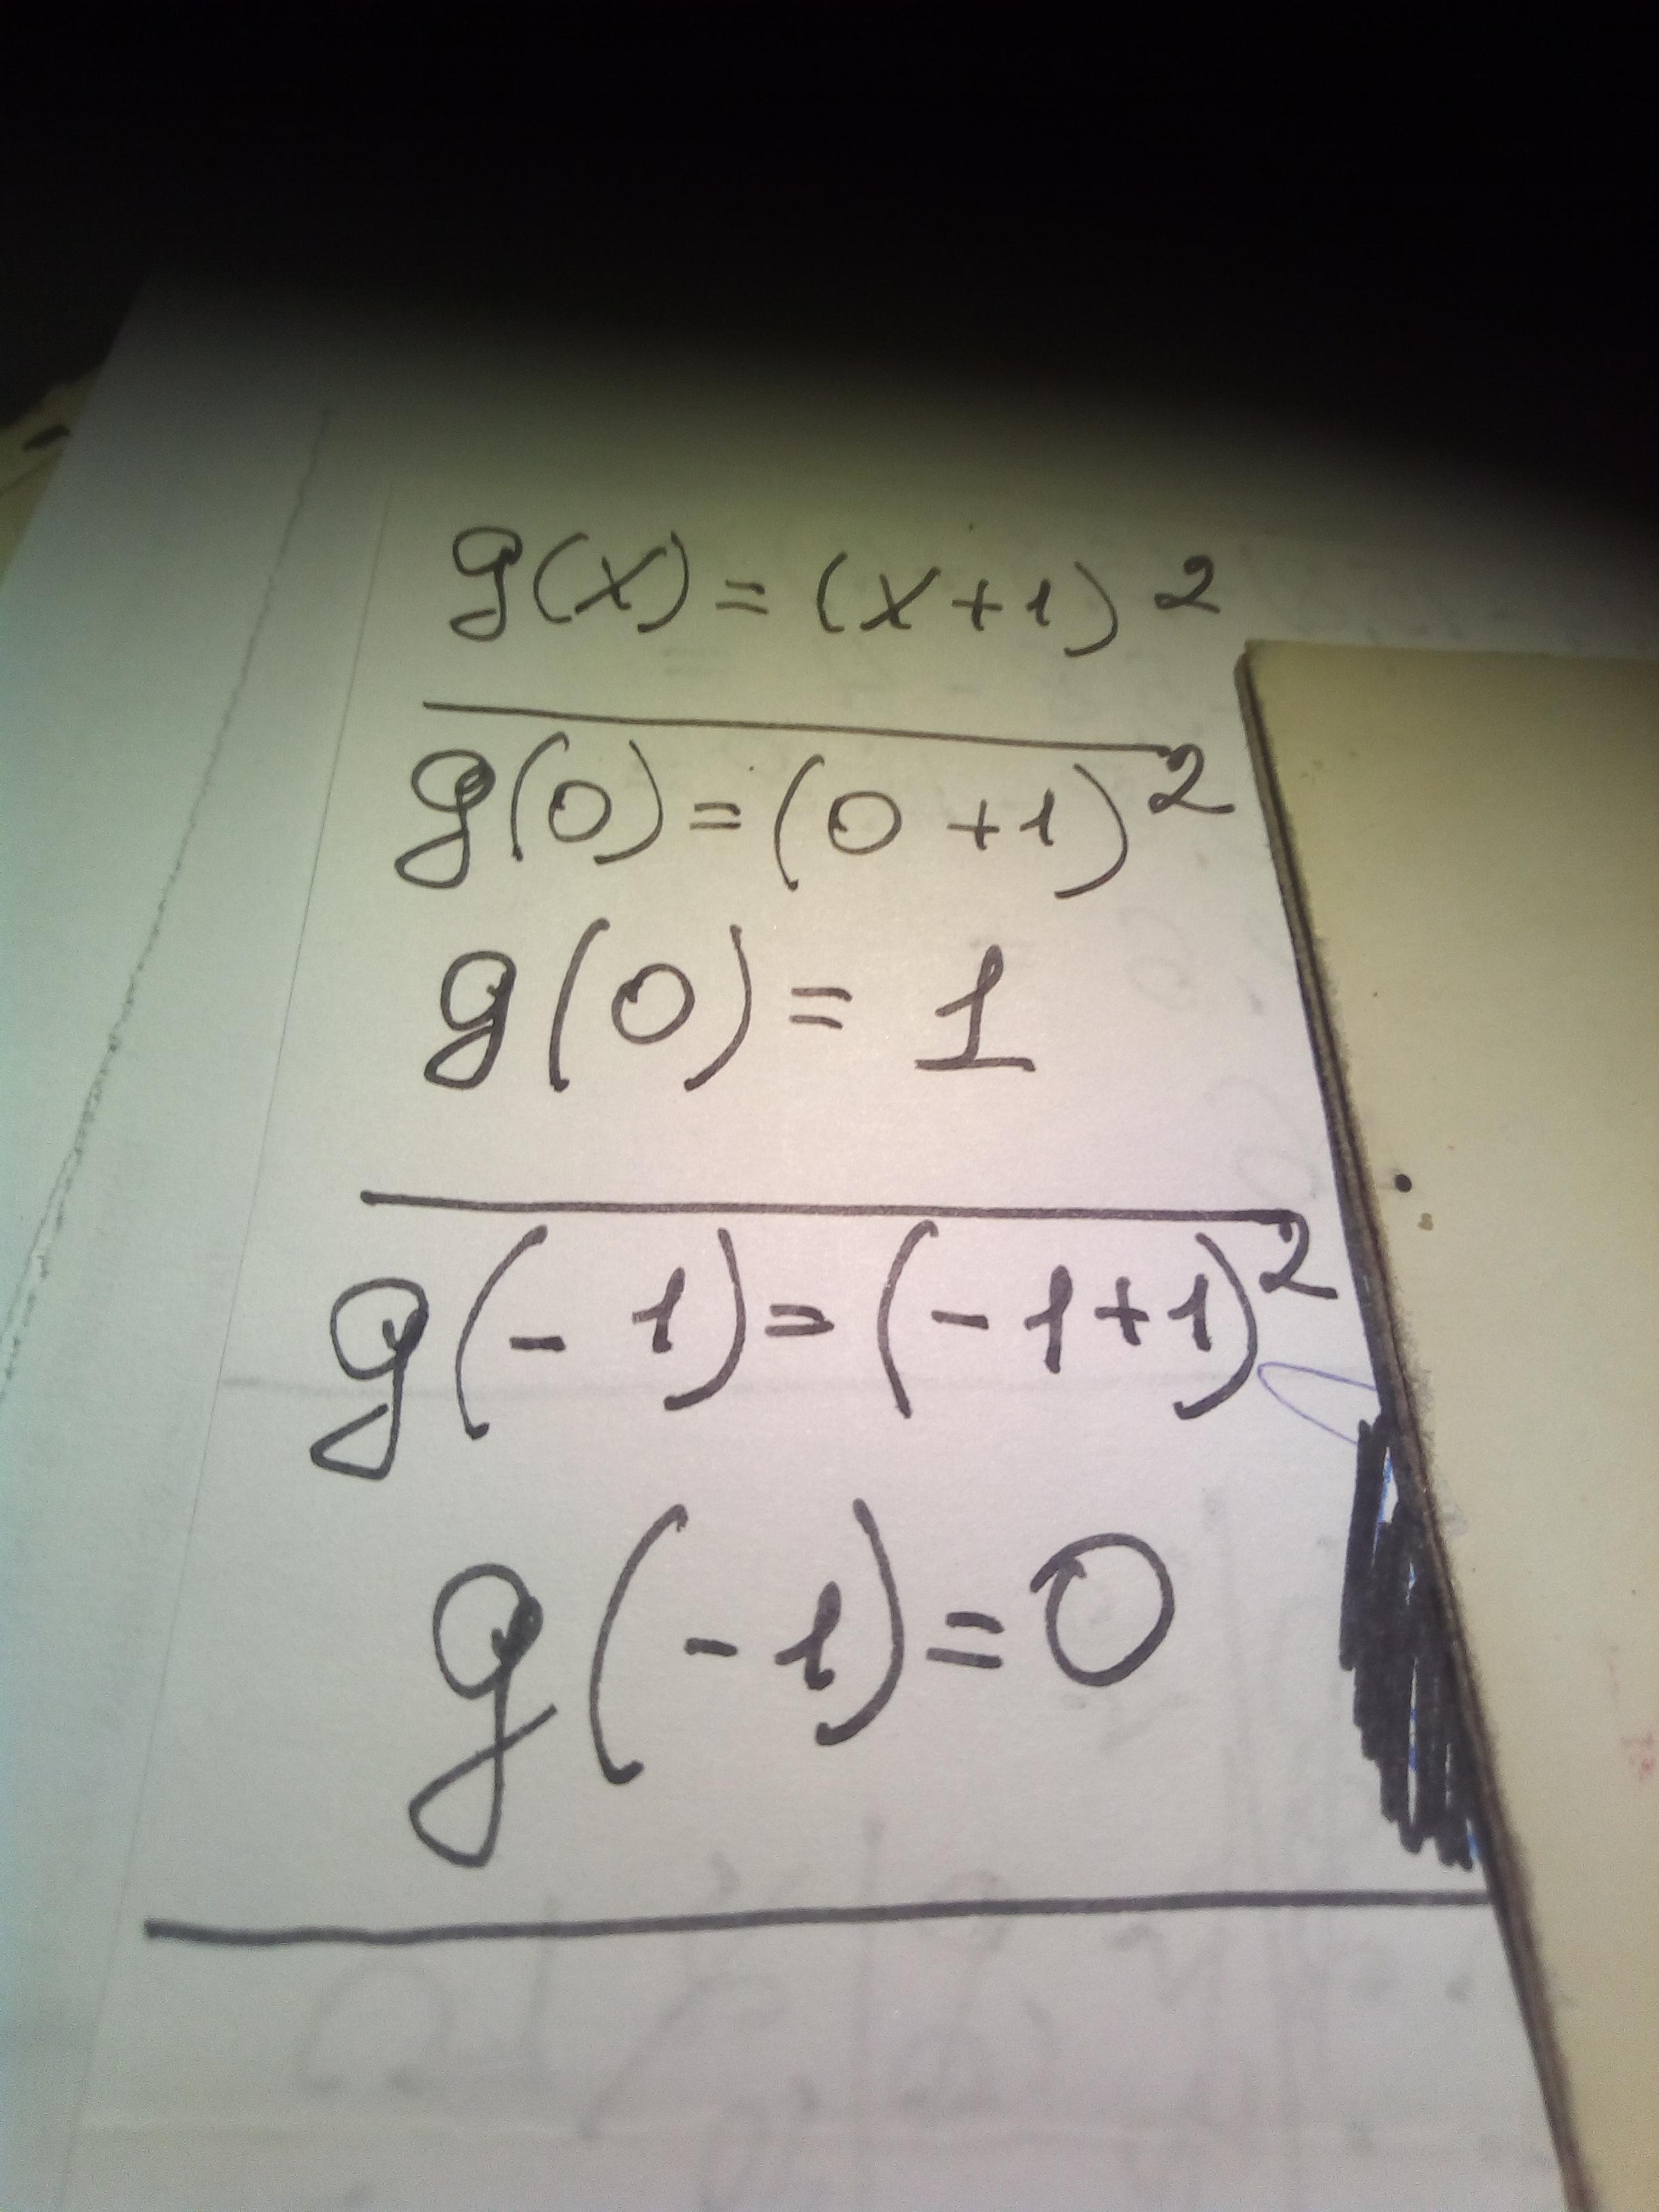 g(x) = (x+1)²
g(0) = (0+1)²
g(0) = 1
g(-1) = (-1+1)²
g(-1) = 0